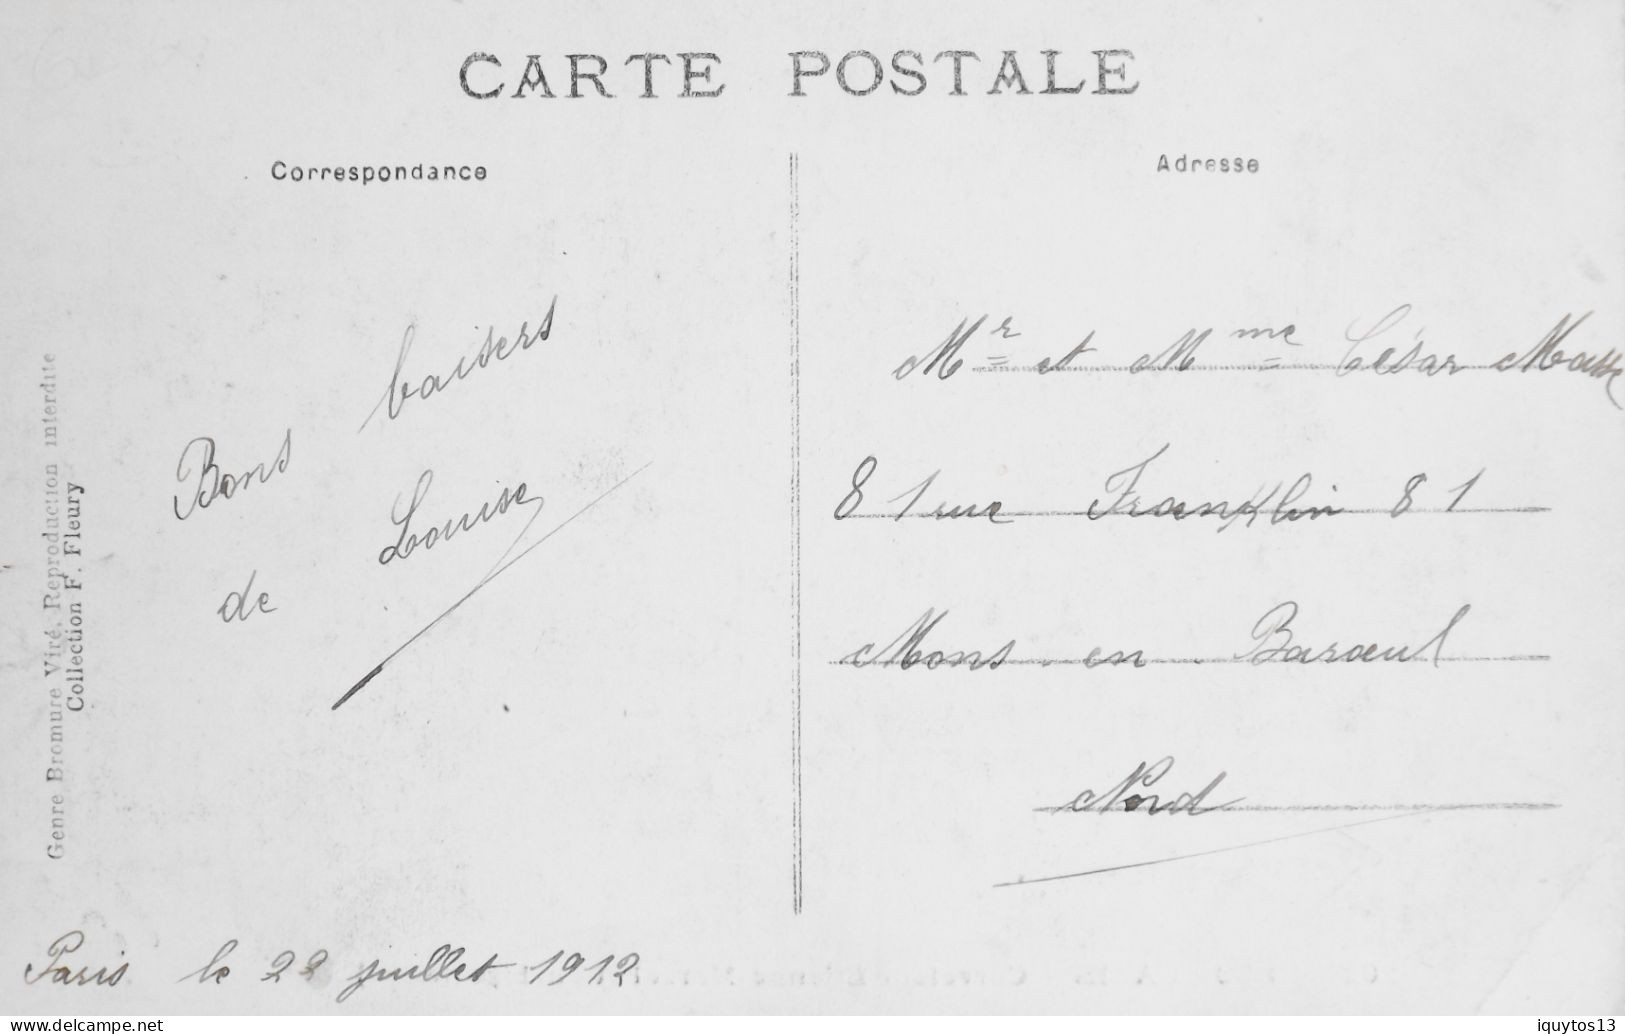 CARTE POSTALE
Correspondance
Adresse
Bons baisers
de Louise
Paris le 22 juillet 1912
Mr et Mme César Masse
81 rue Franklin 81
Mons-en-Barœul
Nord
Genre Bromure Viré, Reproduction interdite
Collection F. Fleury
www.delcampe.net
iquytos13